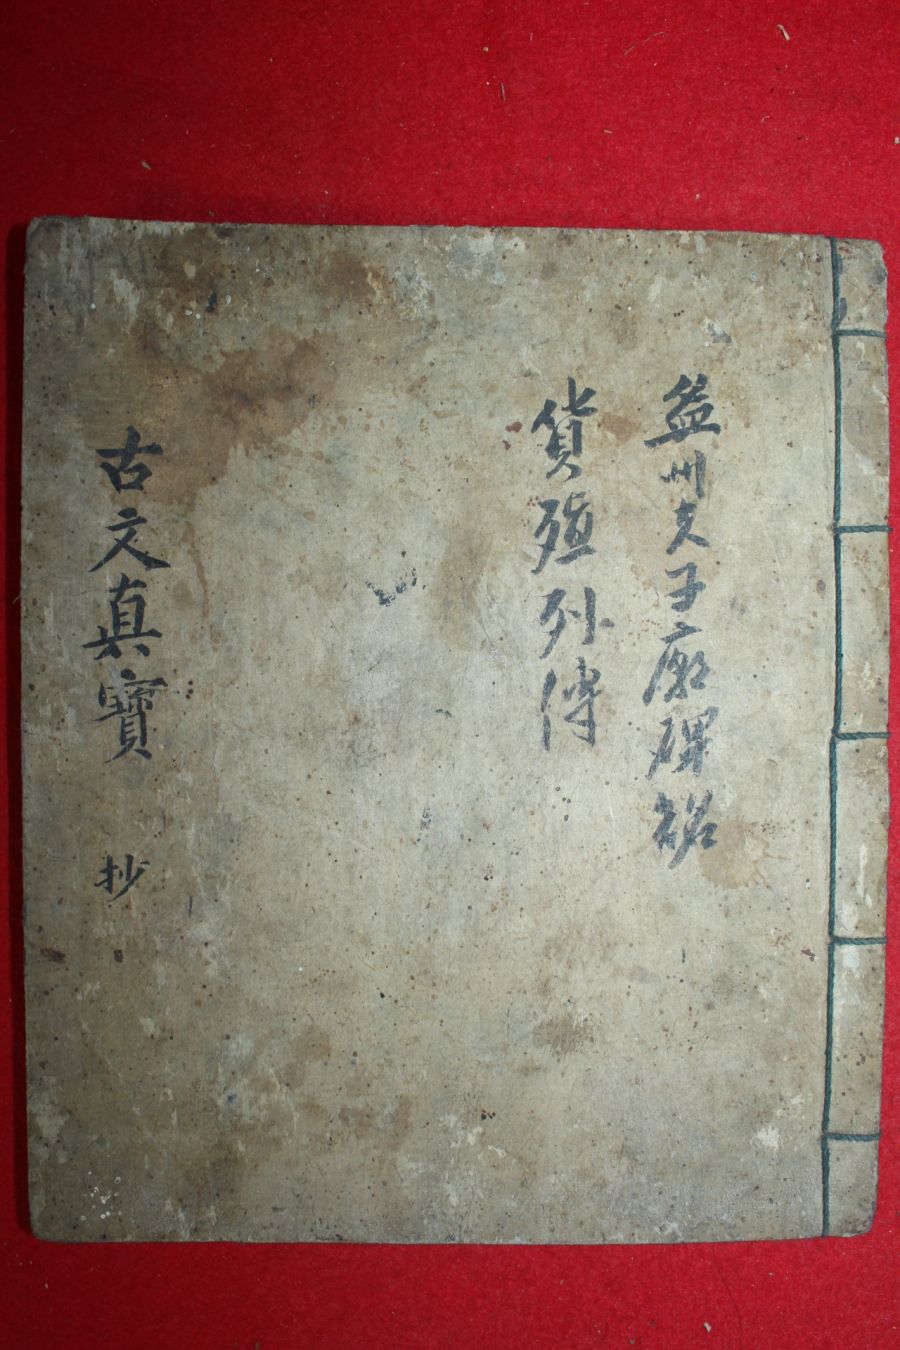 益州夫子廟碑銘
貨殖列傳
古文真寶 抄